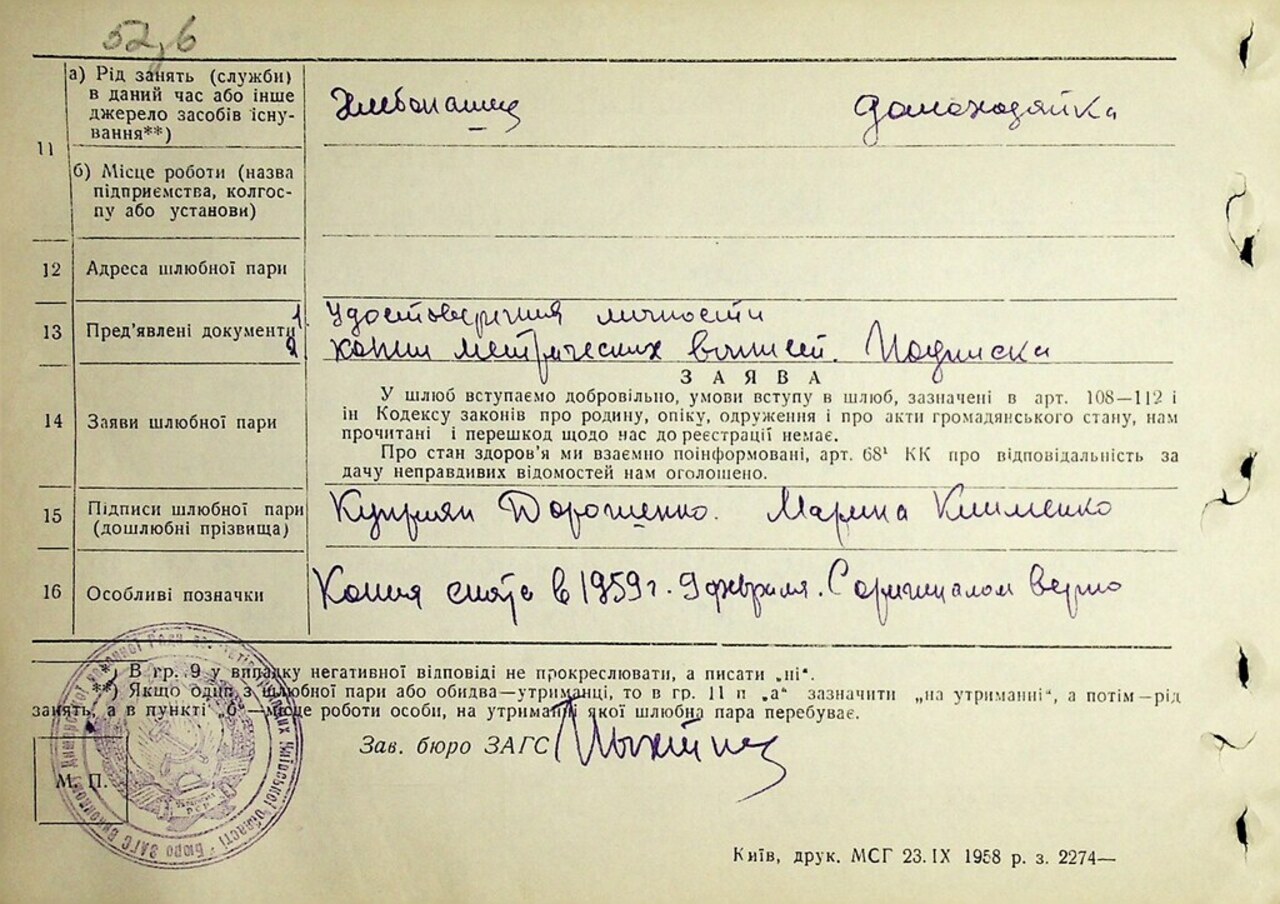 52зв
11
а) Рід занять (служби) в даний час або інше джерело засобів існування**)
Хлебопашец
Домохозяйка
б) Місце роботи (назва підприємства, колгоспу або установи)
12
Адреса шлюбної пари
13
Пред'явлені документи
1. Удостоверения личности
2. копии метрических выписей. Подписка
14
Заяви шлюбної пари
ЗАЯВА
У шлюб вступаємо добровільно, умови вступу в шлюб, зазначені в арт. 108—112 і
ін Кодексу законів про родину, опіку, одруження і про акти громадянського стану, нам
прочитані і перешкод щодо нас до реєстрації немає.
Про стан здоров'я ми взаємно поінформовані, арт. 68¹ КК про відповідальність за
дачу неправдивих відомостей нам оголошено.
15
Підписи шлюбної пари
(дошлюбні прізвища)
Куприян Дорошенко. Марина Клименко
16
Особливі позначки
Копия снята в 1959 г. 9 февраля. С оригиналом верно
*) В гр. 9 у випадку негативної відповіді не прокреслювати, а писати „ні“.
**) Якщо один з шлюбної пари або обидва—утриманці, то в гр. 11 п „а“ зазначити „на утриманні“, а потім—рід
занять, а в пункті „б“—місце роботи особи, на утриманні якої шлюбна пара перебуває.
Зав. бюро ЗАГС
М. П.
Київської області
Бюро ЗАГС
Київ, друк. МСГ 23.IX 1958 р. з. 2274—